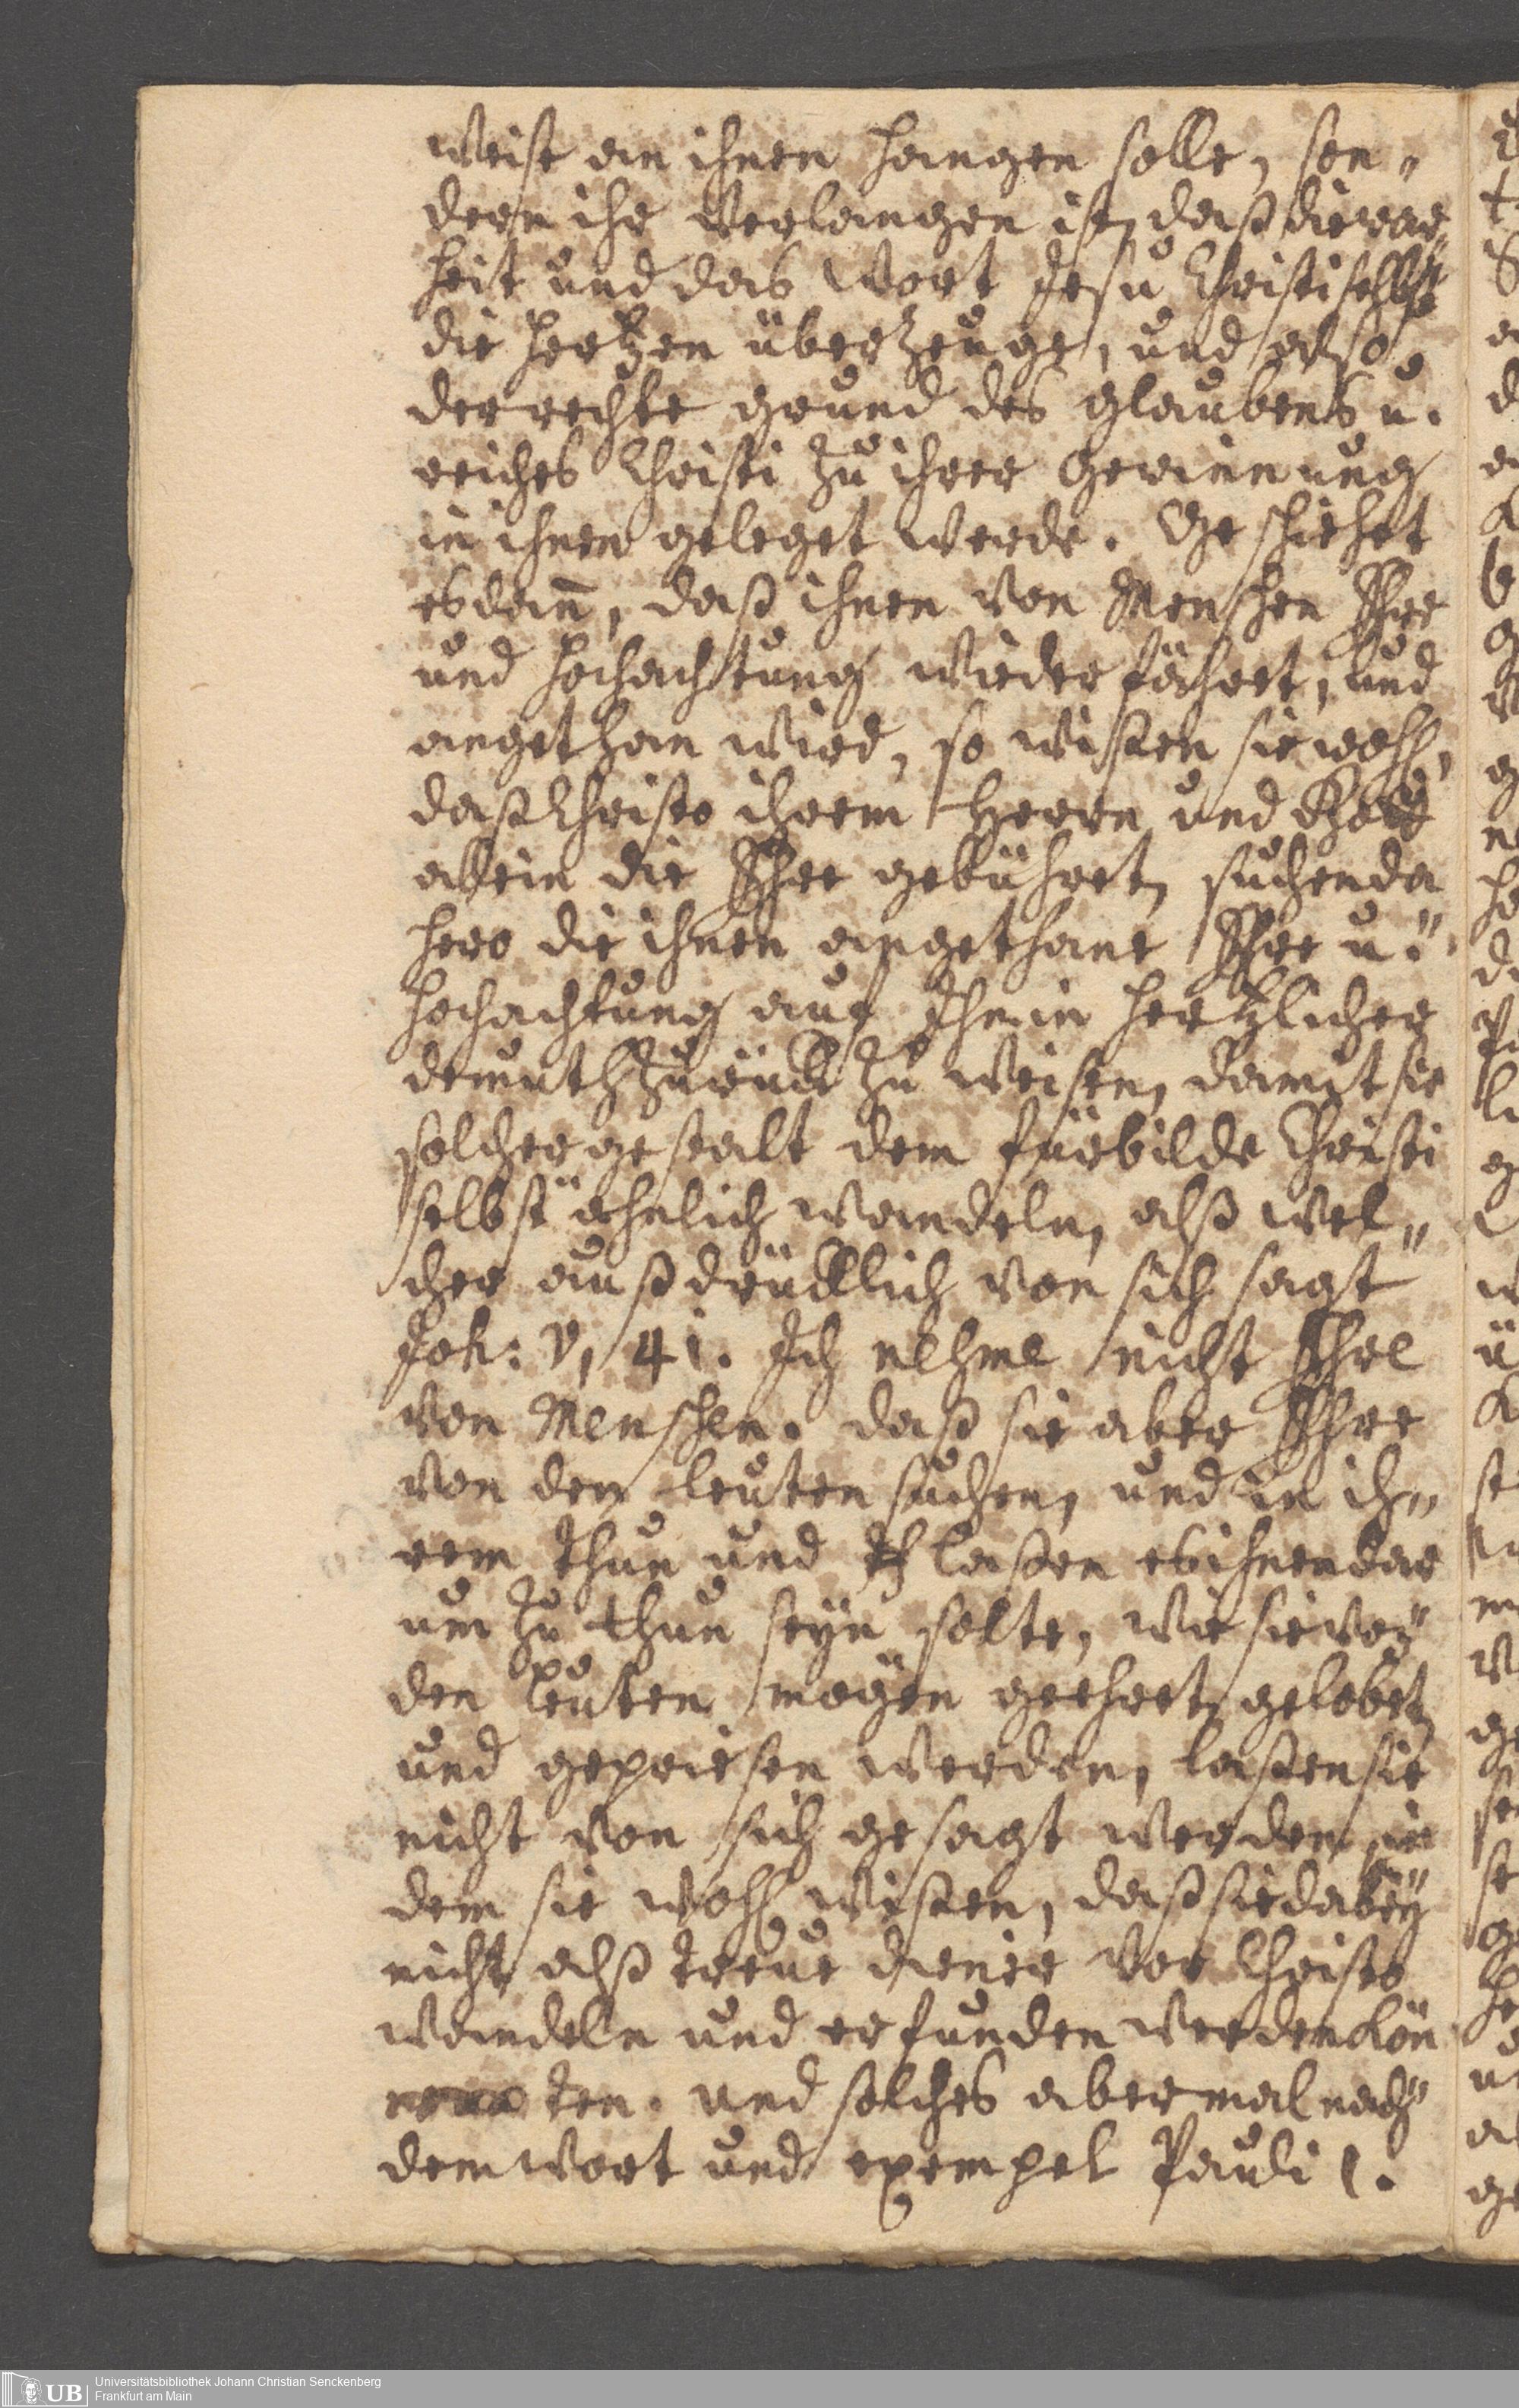 weise an ihnen hangen solle, son„
dern ihr verlangen ist, daß die war„
heit und das Wort Jesu Christi selbst
die hertzen überzeuge, und also
der rechte grund des glaubens u.
reiches Christi zu ihrer Gewinnung
in ihnen geleget werde. Geschiehet
es dañ, daß ihnen von Menschen Ehre
und hochachtung wiederfähret, und
angethan wird, so wißen sie wohl,
daß Christo ihrem Herrn und Gott
allein die Ehre gebühret, suchen da
hero die ihnen angethane Ehre u.
hochachtung auf Ihn in hertzlicher
demuth zurück zu weisen, damit sie
solcher gestalt dem fürbilde Christi
selbst ähnlich wandeln, alß wel„
cher außdrücklich von sich sagt
Joh: V, 41. Ich nehme nicht Ehre
von Menschen. daß sie aber Ehre
von den leuten suchen, und in ih„
rem thun und laßen es ihnen dar
um zu thun seyn solte, wie sie von
den leuten mögen geehret, gelobet,
und gepriesen werden, laßen sie
nicht von sich gesagt werden, in
dem sie wohl wißen, daß sie dabey
nicht alß treue diener vor Christo
wandeln und erfunden werden kön
ten. und solches abermal nach
dem wort und exempel Pauli 1.
UB
Universitätsbibliothek Johann Christian Senckenberg
Frankfurt am Main